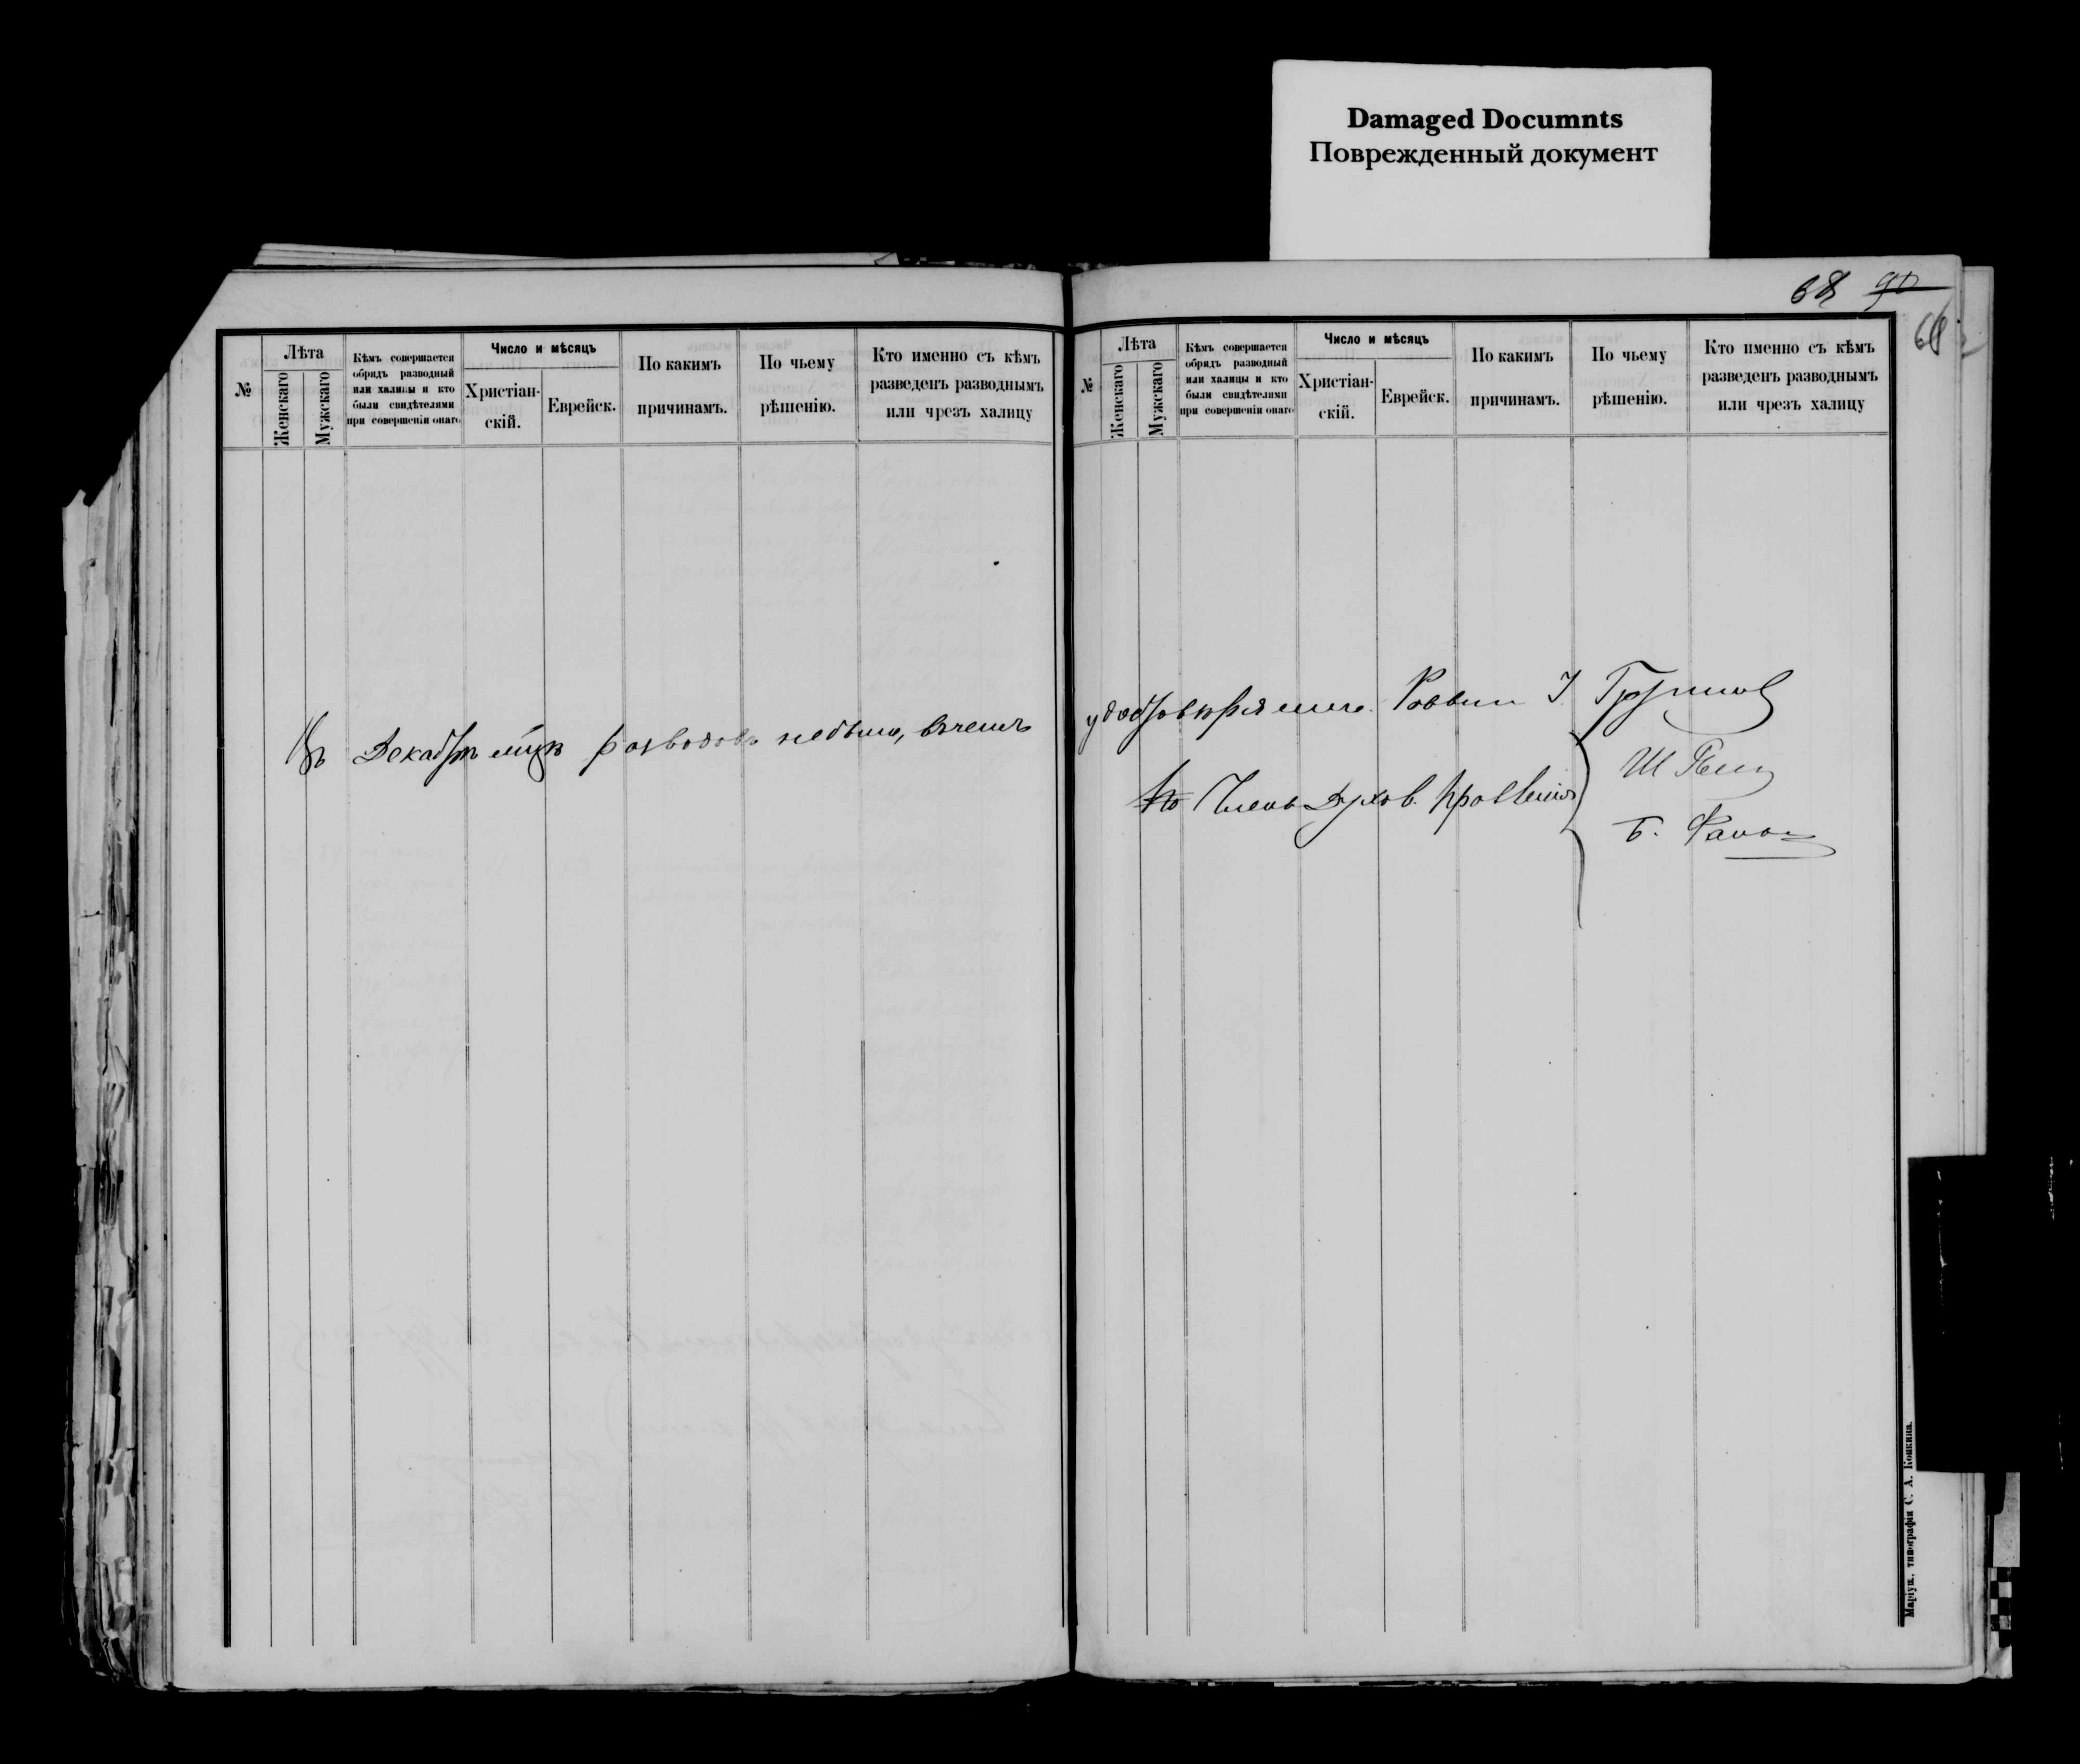 Damaged Documnts
Поврежденный документ
68 90
68
№
Лѣта
Женскаго
Мужскаго
Кѣмъ совершается
обрядъ разводный
или халицы и кто
были свидѣтелями
при совершеніи онаго
Число и мѣсяцъ
Христіан-
скій.
Еврейск.
По какимъ
причинамъ.
По чьему
рѣшенію.
Кто именно съ кѣмъ
разведенъ разводнымъ
или чрезъ халицу
Въ Декабрѣ м-цѣ разводовъ небыло, въ чемъ
№
Лѣта
Женскаго
Мужскаго
Кѣмъ совершается
обрядъ разводный
или халицы и кто
были свидѣтелями
при совершеніи онаго
Число и мѣсяцъ
Христіан-
скій.
Еврейск.
По какимъ
причинамъ.
По чьему
рѣшенію.
Кто именно съ кѣмъ
разведенъ разводнымъ
или чрезъ халицу
удостовѣряемъ. Раввин
Члены Духов. Правленія
Ш
Б.
Маріуп., типографія С. А. Копкина.